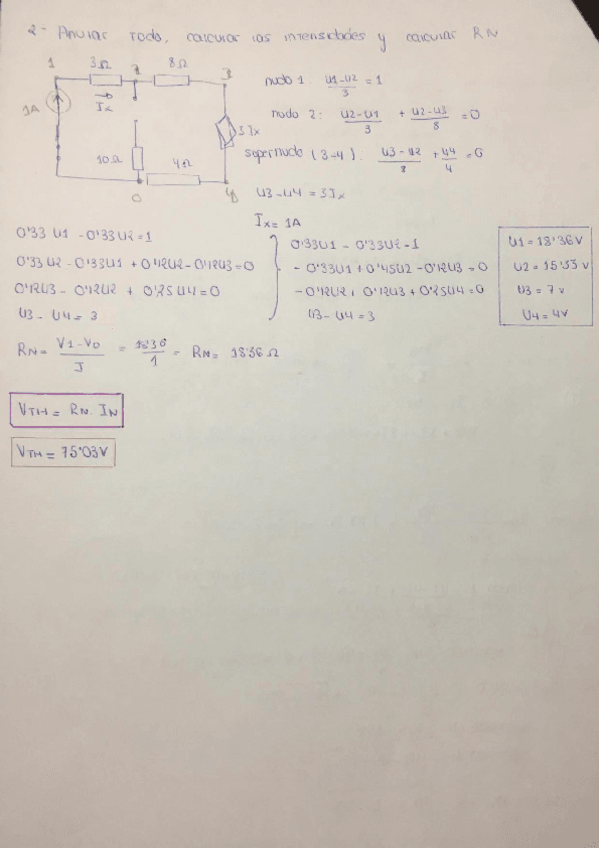 2- Anular todo, calcular las intensidades y calcular RN
1 3Ω 2 8Ω 3
1A Ix 3Ix
10Ω 4Ω
0 4
nudo 1: U1-U2/3 = 1
nudo 2: U2-U1/3 + U2-U3/8 = 0
supernudo (3-4): U3-U2/8 + U4/4 = 0
U3-U4 = 3Ix
Ix = 1A
0'33 U1 - 0'33 U2 = 1
0'33 U2 - 0'33U1 + 0'12U2 - 0'12U3 = 0
0'12U3 - 0'12U2 + 0'25U4 = 0
U3 - U4 = 3
0'33U1 - 0'33U2 = 1
- 0'33U1 + 0'45U2 - 0'12U3 = 0
- 0'12U2 + 0'12U3 + 0'25U4 = 0
U3 - U4 = 3
U1 = 18'36 V
U2 = 15'33 V
U3 = 7 V
U4 = 4V
RN = V1-V0/I = 18'36/1 = RN = 18'36 Ω
VTH = RN. IN
VTH = 75'03V